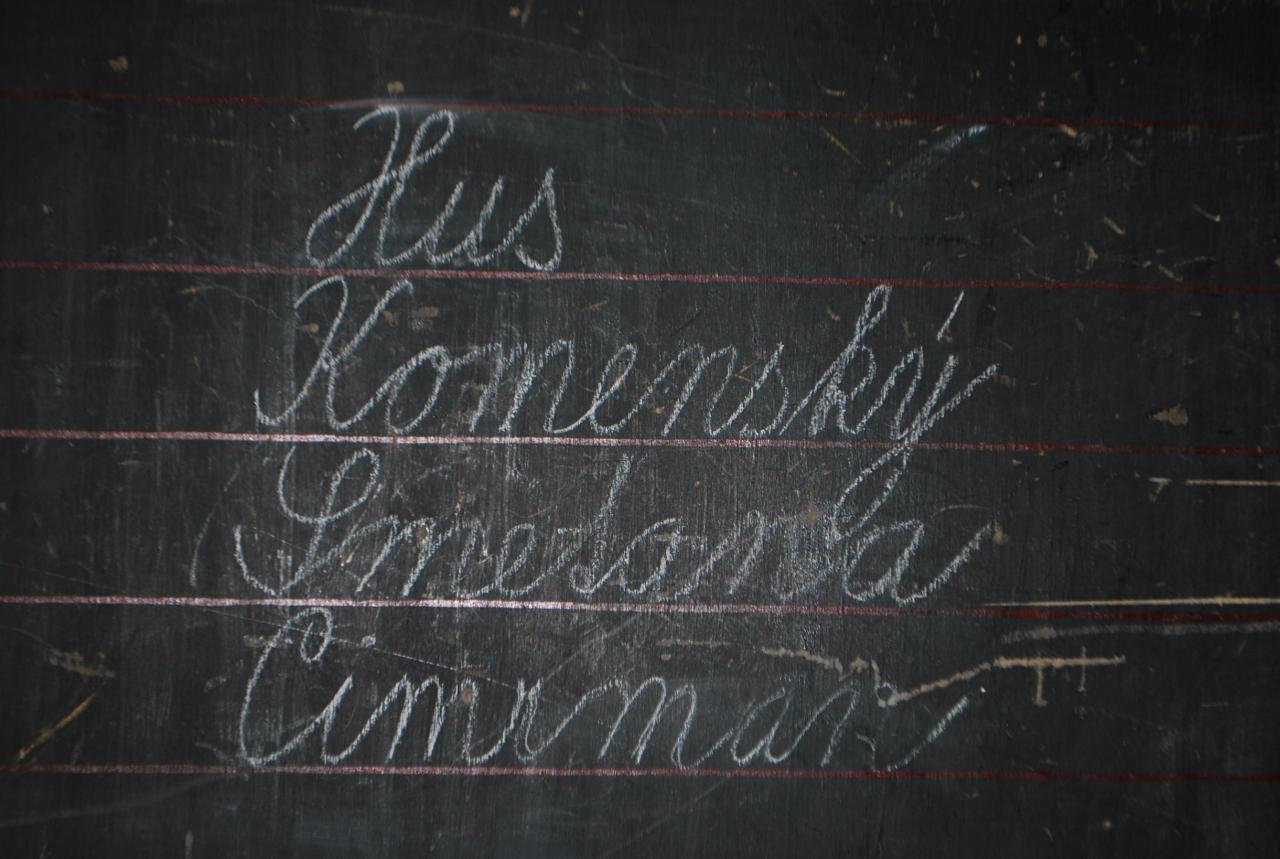 Hus
Komenský
Smetanka
Cimrman